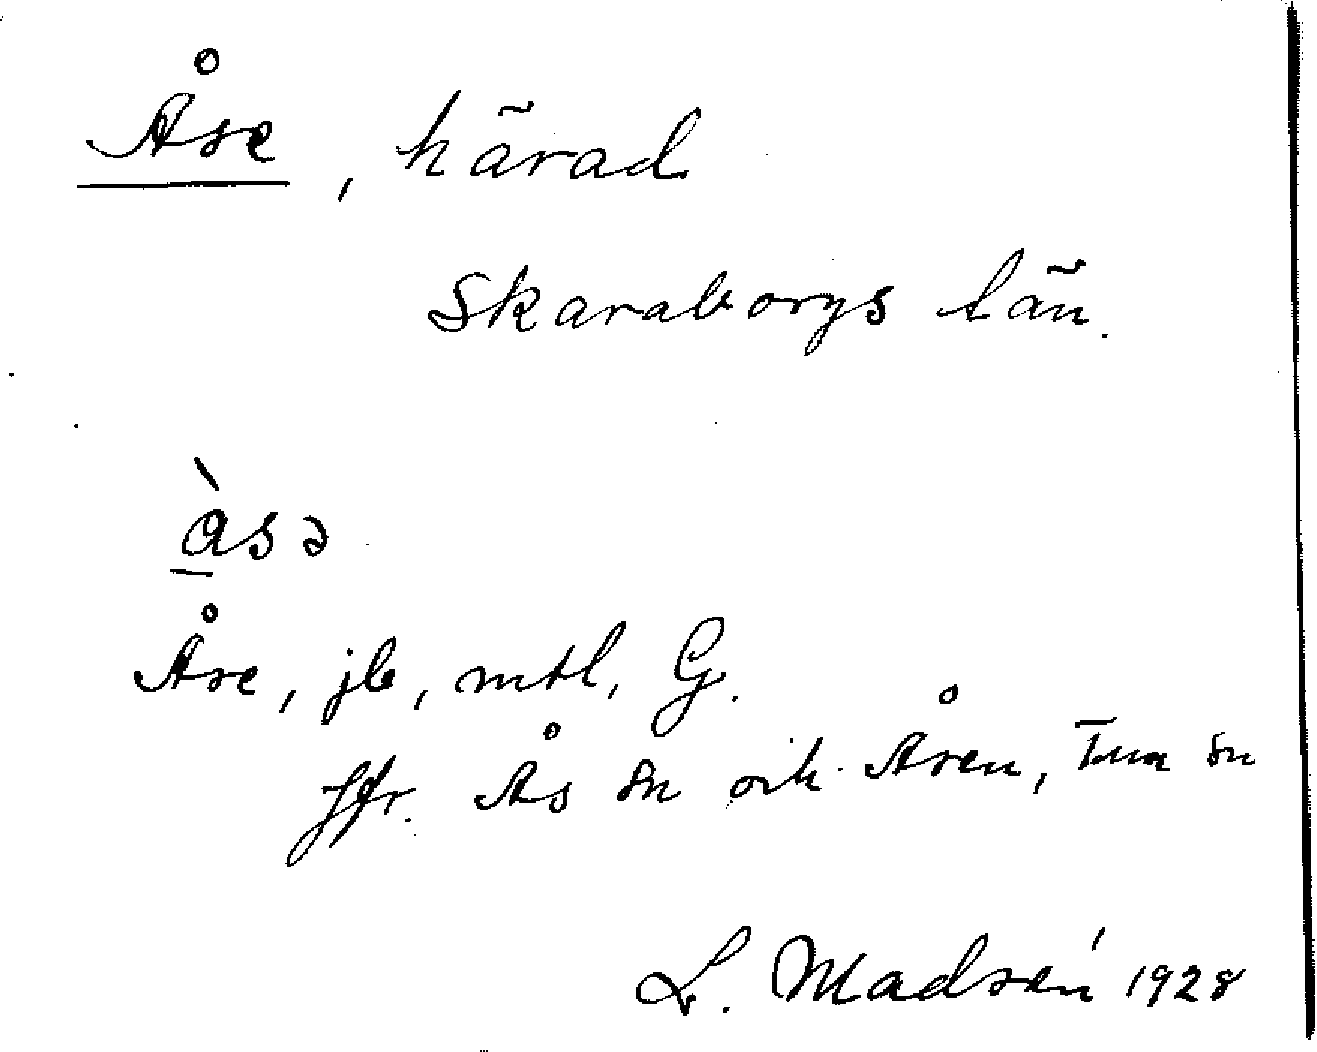 Åse, härad
Skaraborgs län.
å̀sə
Åse, jb, mtl, G.
Jfr. Ås sn och Åsen, Tun sn
L. Madsén 1928